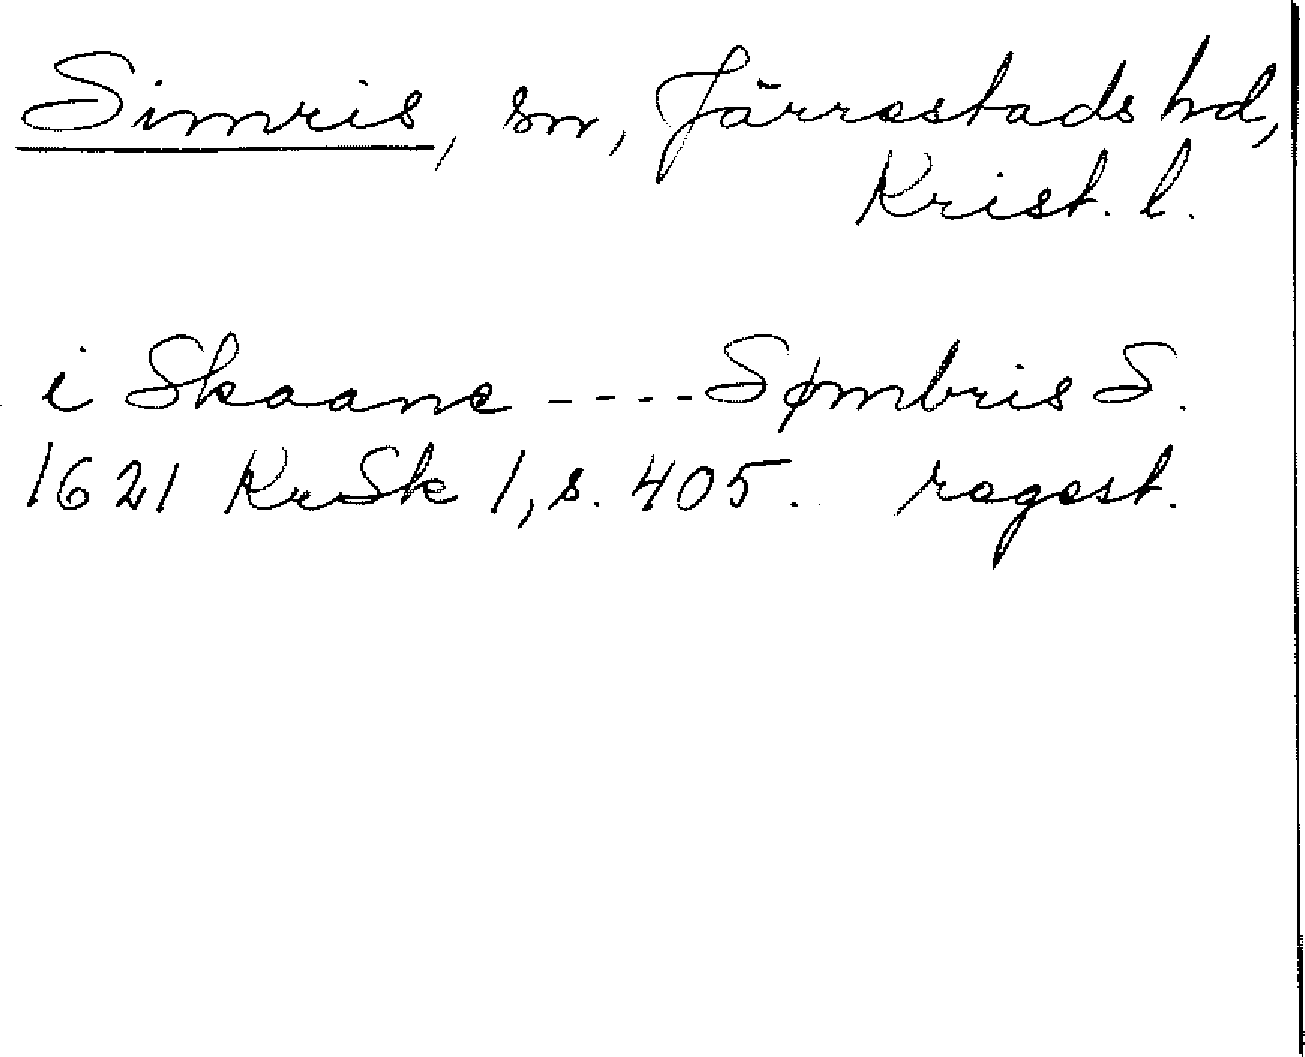 Simris, sn, Järrestads hd,
Krist. l.
i Skaane ---- Sømbris S.
1621 KrSk 1, s. 405. regest.